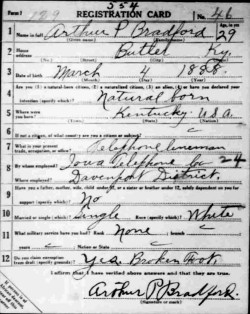 354
Form 1 129 REGISTRATION CARD No. 46
1 Name in full Arthur P Bradford Age, in yrs. 29
(Given name) (Family name)
2 Home address Butler Ky.
(No.) (Street) (City) (State)
3 Date of birth March 11 1888
(Month) (Day) (Year)
4 Are you (1) a natural-born citizen, (2) a naturalized citizen, (3) an alien, (4) or have you declared your
intention (specify which)? Natural born
5 Where were you born? Kentucky. U.S.
(Town) (State) (Nation)
6 If not a citizen, of what country are you a citizen or subject?
7 What is your present trade, occupation, or office? Telephone lineman
8 By whom employed? Iowa Telephone Co 24
Where employed? Davenport District.
9 Have you a father, mother, wife, child under 12, or a sister or brother under 12, solely dependent on you for
support (specify which)? No
10 Married or single (which)? Single Race (specify which)? White
11 What military service have you had? Rank None ; branch
years ; Nation or State
12 Do you claim exemption from draft (specify grounds)? Yes. Broken Foot
I affirm that I have verified above answers and that they are true.
Arthur P Bradford.
(Signature or mark)